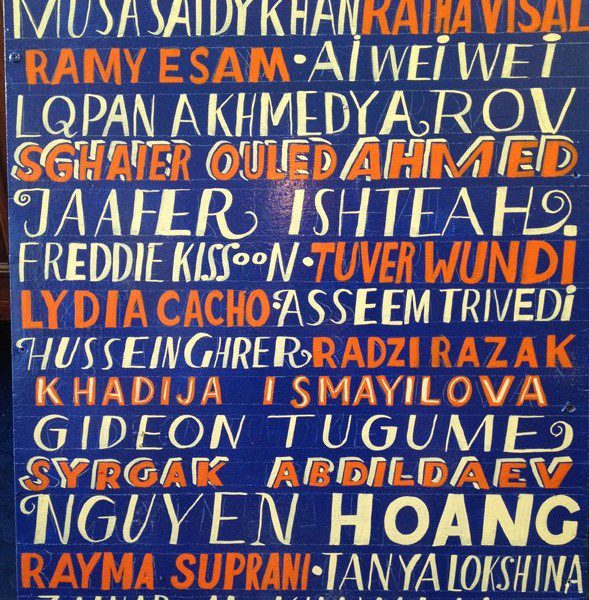 MUSA SAIDYKHAN RATHA VISAL
RAMY ESAM • AiWEiWEi
LQPAN AKHMEDYAROV
SGHAIER OULED AHMED
JAAFER ISHTEAH.
FREDDIE KISSooN • TUVER WUNDI
LYDIA CACHO • ASSEEM TRIVEDi
HUSSEIN GHRER RADZI RAZAK
KHADIJA ISMAYILOVA
GIDEON TUGUME
SYRGAK ABDILDAEV
NGUYEN HOANG
RAYMA SUPRANI • TANYA LOKSHINA